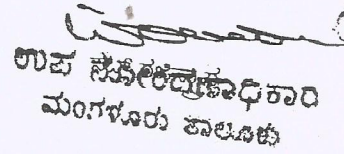 ಉಪ ನೋಂದಣಾಧಿಕಾರಿ
ಮಂಗಳೂರು ತಾಲೂಕು